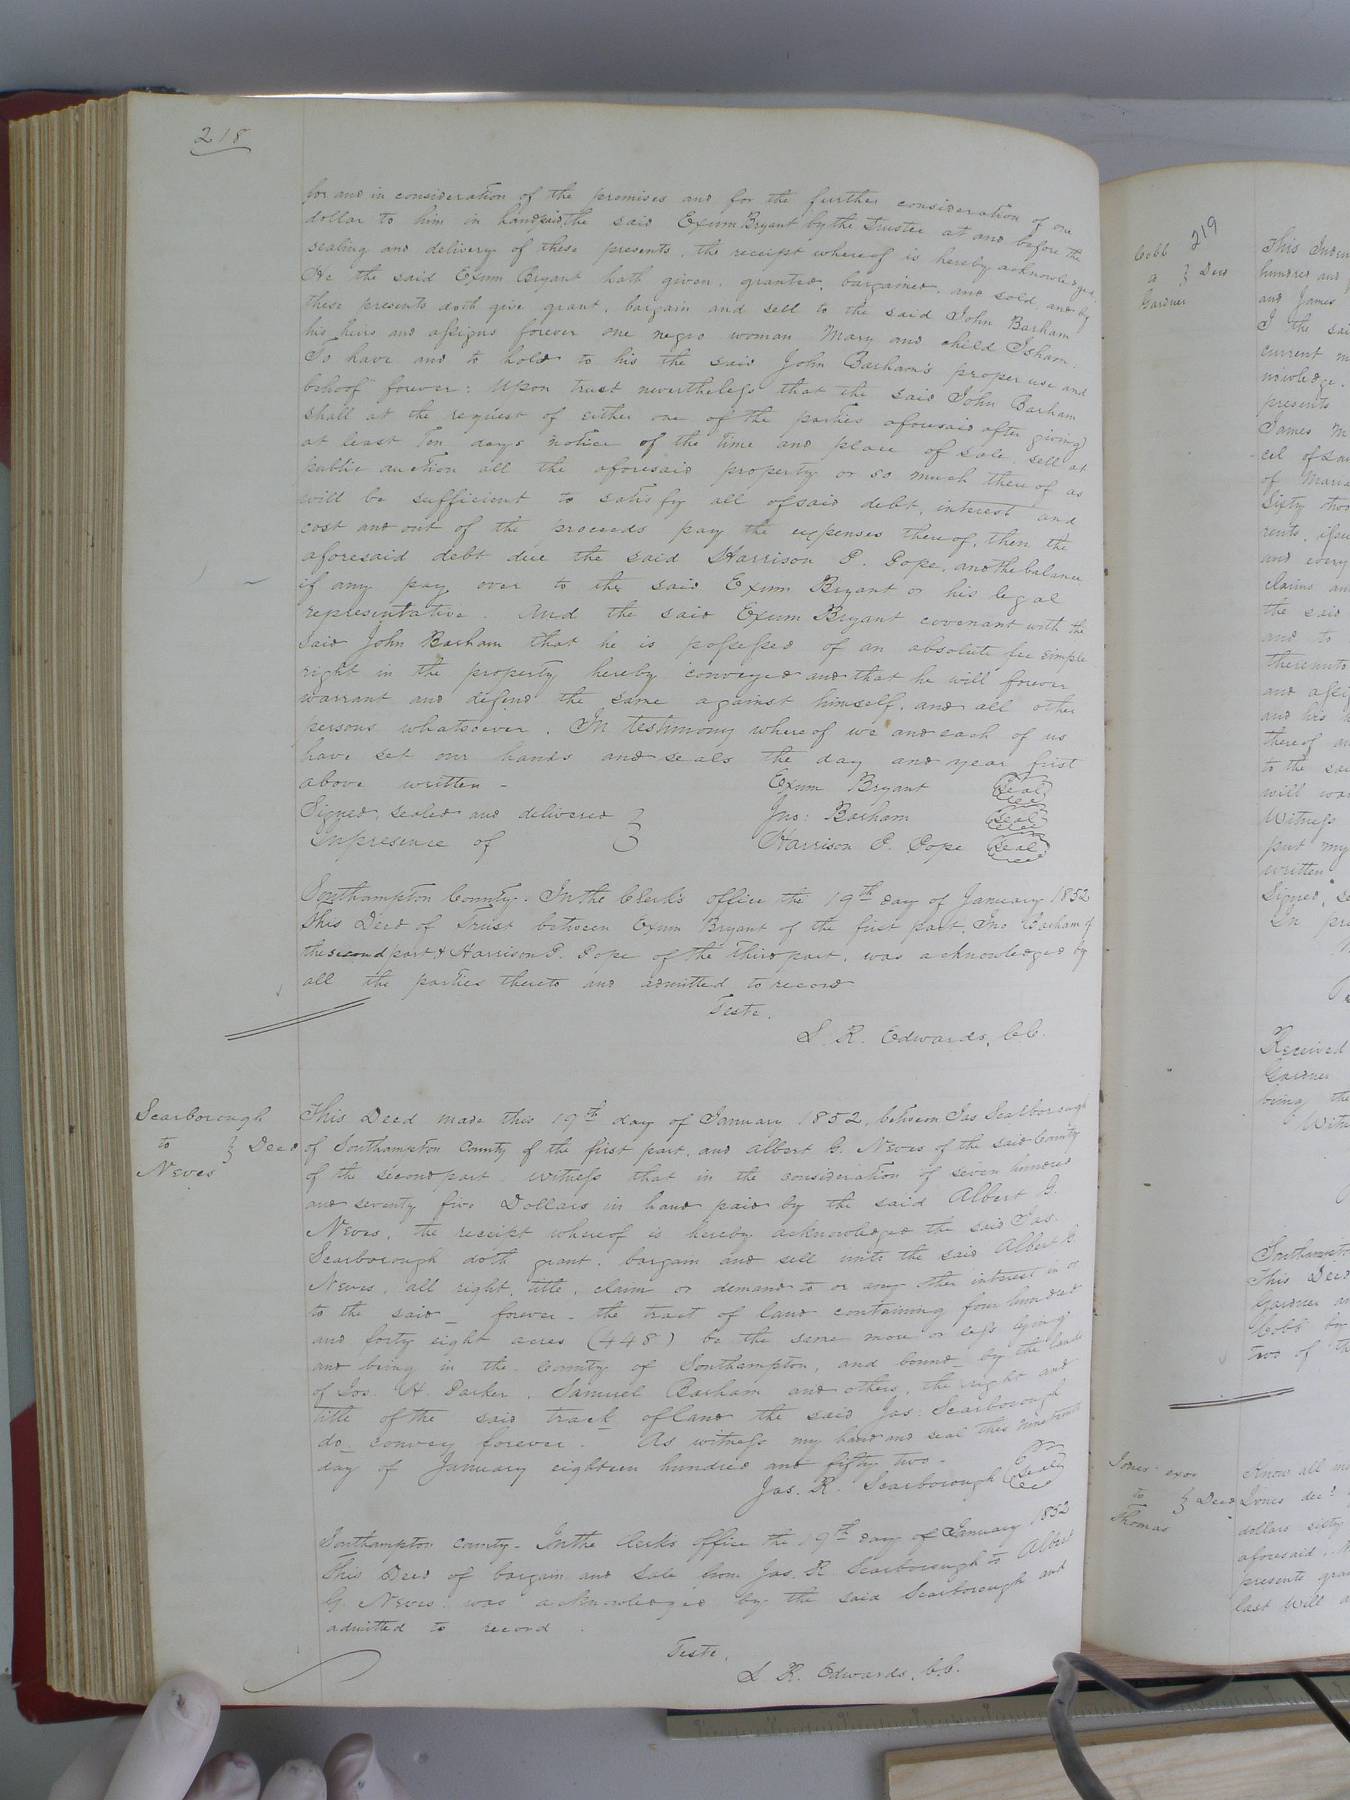 218
for and in consideration of the premises and for the further consideration of one
dollar to him in hand paid, the said Exum Bryant by the Trustee at and before the
sealing and delivery of these presents, the receipt whereof is hereby acknowledged.
He the said Exum Bryant hath given, granted, bargained, and sold, and by
these presents doth give grant, bargain and sell to the said John Barham
his heirs and assigns forever one negro woman Mary and child Isham.
To have and to hold to his the said John Barham's proper use and
behoof forever: Upon trust nevertheless that the said John Barham
shall at the request of either one of the parties aforesaid after giving
at least Ten days notice of the Time and place of sale, sell at
public auction all the aforesaid property or so much thereof as
will be sufficient to satisfy all of said debt, interest and
cost and out of the proceeds pay the expenses thereof, then the
aforesaid debt due the said Harrison P. Pope, and the balance
if any pay over to the said Exum Bryant or his legal
representative. And the said Exum Bryant covenant with the
said John Barham that he is possessed of an absolute fee simple
right in the property hereby conveyed and that he will forever
warrant and defend the same against himself, and all other
persons whatsoever. In testimony whereof we and each of us
have set our hands and seals the day and year first
above written -
Exum Bryant Seal
Signed, sealed and delivered
Jno: Barham Seal
In presence of
Harrison P. Pope Seal
Southampton County. In the Clerk's office the 19th day of January 1852
This Deed of Trust between Exum Bryant of the first part, Jno Barham of
the second part & Harrison P. Pope of the Third part, was acknowledged by
all the parties thereto and admitted to record
Teste,
L. R. Edwards, C.C.
Scarborough
to } Deed
Neves
This Deed made this 19th day of January 1852, between Jas Scarborough
of Southampton County of the first part, and Albert G. Neves of the said County
of the second part. Witness that in the consideration of seven hundred
and seventy five Dollars in hand paid by the said Albert G.
Neves, the receipt whereof is hereby acknowledged the said Jas.
Scarborough doth grant, bargain and sell unto the said Albert
Neves, all right, title, claim or demand to or any other interest in or
to the said _ forever - the tract of land containing four hundred
and forty eight acres (448) be the same more or less lying
and being in the County of Southampton, and bound_ by the lands
of Jos. H. Parker, Samuel Barham and others, the right and
title of the said track of land the said Jas: Scarborough
do_ convey forever. As witness my hand and seal this nineteenth
day of January eighteen hundred and fifty two -
Jas. R. Scarborough Seal
Southampton County - In the Clerks Office the 19th day of January 1852
This Deed of bargain and Sale from Jas. R Scarborough to Albert
G. Neves was acknowledged by the said Scarborough and
admitted to record.
Teste,
L R. Edwards, C.C.
219
Cobb
a } Deed
Gardner
This Inden
hundred and
and James
I the sai
current m
presents
James M
cel of
of Maria
Sixty two
rents, issu
and every
claims an
the said
and to
thereunto
and assig
and his h
thereof an
to the sai
will war
Witness
put my
written
Signed, Se
In pre
Received
Gardner
being the
Witn
Southampton
This Deed
Gardner an
Cobb by
two of th
Jones exor
to } Deed
Thomas
Know all me
Jones decd
dollars sixty
aforesaid,
presents gra
last Will a